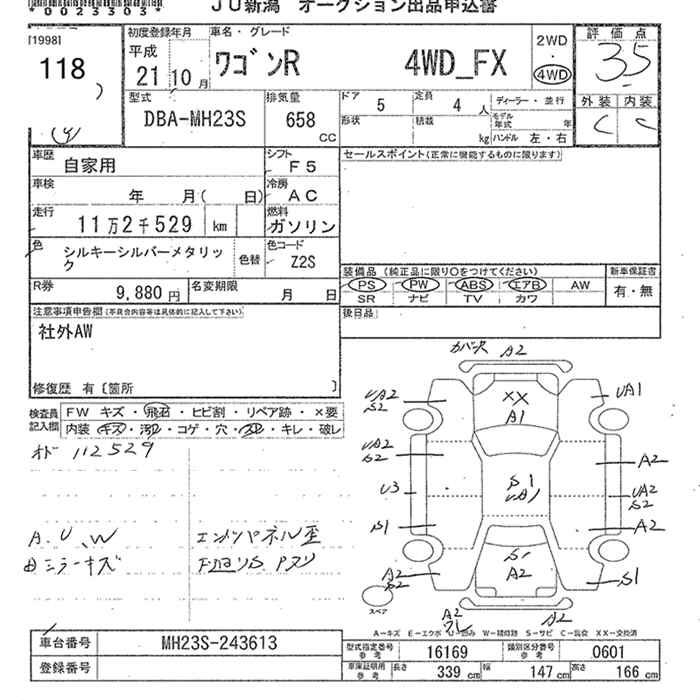 *0023303*
JU新潟 オークション出品申込書
[1998]
118
初度登録年月
平成
21年10月
車名・グレード
ワゴンR 4WD_FX
2WD
・
4WD
評価点
3.5
外装 内装
C C
型式
DBA-MH23S
排気量
658
CC
ドア 5
定員 4 人
ディーラー・並行
形状
積載
kg
モデル年式 年
ハンドル 左・右
車歴
自家用
シフト
F5
セールスポイント(正常に機能するものに限ります)
車検
年 月( 日)
冷房
AC
走行
11万2千529 km
燃料
ガソリン
色
シルキーシルバーメタリック
色替
色コード
Z2S
装備品(純正品に限り○をつけてください)
新車保証書
PS PW ABS エアB AW
有・無
SR ナビ TV カワ
R券
9,880円
名変期限
月 日
後日品
注意事項申告欄(不具合内容等は具体的に記入して下さい)
社外AW
修復歴 有〔箇所 〕
検査員記入欄
FW キズ・飛石・ヒビ割・リペア跡・×要
内装 キズ・汚レ・コゲ・穴・スレ・キレ・破レ
オド 112529
A.U.W
エンジンパネル歪
ミラーキズ
A2
UA2
S2
XX
A1
UA1
UA2
S2
U3
S1
S1
UA1
A2
UA2
S2
A2
A2
S2
S1
A2
S1
スペア
A2
ワレ
A2
A-キズ E-エクボ U-凹み W-補修跡 S-サビ C-腐食 XX-交換済
車台番号
MH23S-243613
登録番号
型式指定番号
参考
16169
類別区分番号
参考
0601
車庫証明用
参考
長さ 339 cm
幅 147 cm
高さ 166 cm